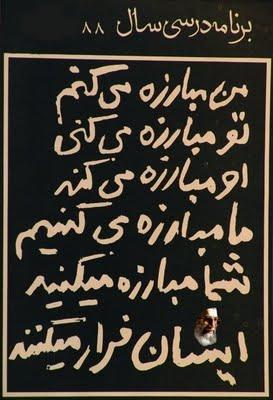 برنامه درسی سال ۸۸
من مبارزه می کنم
تو مبارزه می کنی
او مبارزه می کند
ما مبارزه می کنیم
شما مبارزه میکنید
ایشان فرار میکنند